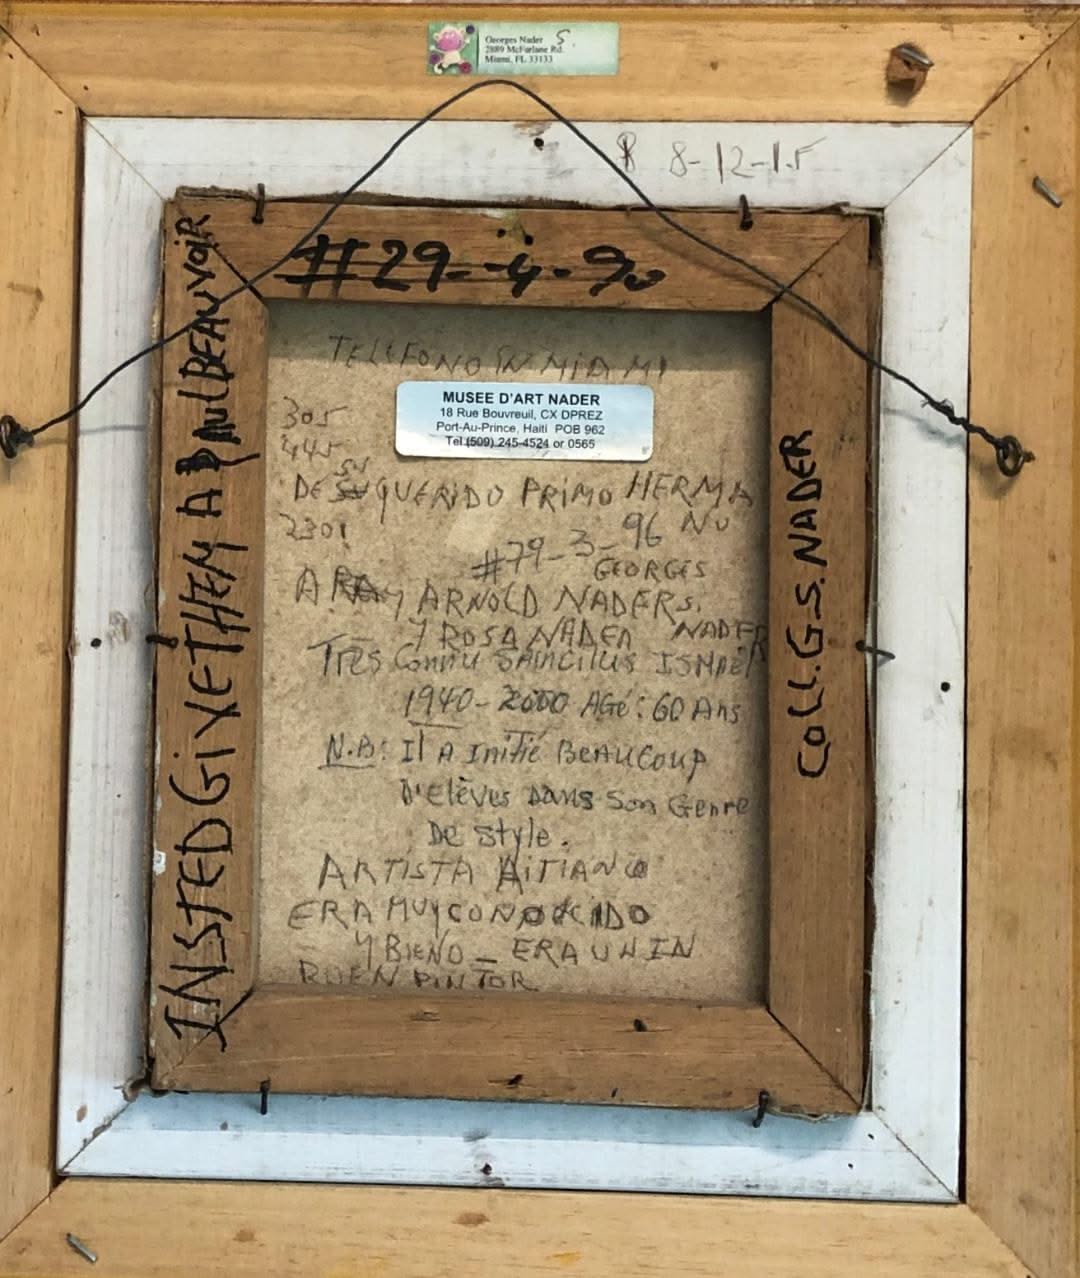 Georges Nader S.
2889 McFarlane Rd.
Miami, FL 33133
8-12-15
#29-4-90
INSTED GiVE THEM A PAUL BEAUVOiR
COLL. G.S. NADER
TELEFONO IN MiAMI
305
445
2301
MUSEE D'ART NADER
18 Rue Bouvreuil, CX DPREZ
Port-Au-Prince, Haiti POB 962
Tel.(509) 245-4524 or 0565
DE SU QUERIDO PRIMO HERMA
NO
#79-3-96
GEORGES
A ARNOLD NADER S.
Y ROSA NADER NADER
Très Connu SAINCILUS ISMAËL
1940-2000 AGé: 60 Ans
N.B: Il A Initié BEAUCOUP
D'Elèves Dans Son Genre
De Style.
ARTISTA AiTIANO
ERA MUY CONOCIDO
Y BIENO_ERA UN IN
BUEN PINTOR